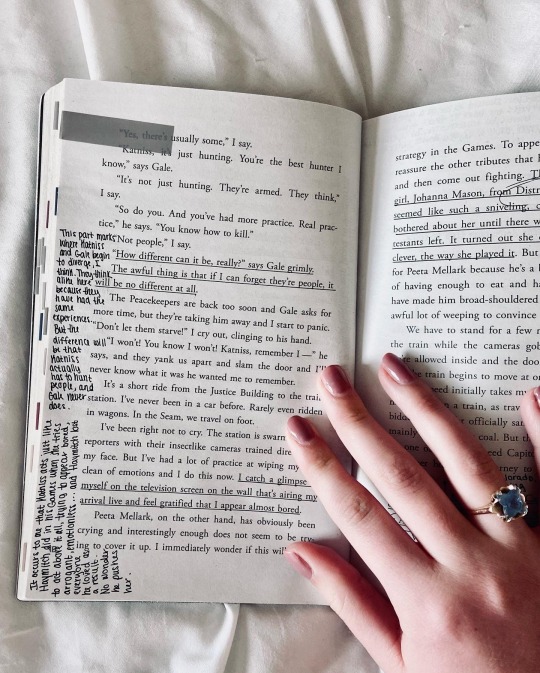 "Yes, there's usually some," I say.
"Katniss, it's just hunting. You're the best hunter I
know," says Gale.
"It's not just hunting. They're armed. They think,"
I say.
"So do you. And you've had more practice. Real prac-
tice," he says. "You know how to kill."
"Not people," I say.
"How different can it be, really?" says Gale grimly.
The awful thing is that if I can forget they're people, it
will be no different at all.
The Peacekeepers are back too soon and Gale asks for
more time, but they're taking him away and I start to panic.
"Don't let them starve!" I cry out, clinging to his hand.
"I won't! You know I won't! Katniss, remember I —" he
says, and they yank us apart and slam the door and I'll
never know what it was he wanted me to remember.
It's a short ride from the Justice Building to the train
station. I've never been in a car before. Rarely even ridden
in wagons. In the Seam, we travel on foot.
I've been right not to cry. The station is swarm
reporters with their insectlike cameras trained dire
my face. But I've had a lot of practice at wiping my
clean of emotions and I do this now. I catch a glimpse
myself on the television screen on the wall that's airing my
arrival live and feel gratified that I appear almost bored.
Peeta Mellark, on the other hand, has obviously been
crying and interestingly enough does not seem to be try-
ing to cover it up. I immediately wonder if this will
This part marks
where Katniss
and Gale begin
to diverge, I
think. They think
alike here
because they
have had the
same
experiences.
But the
difference will
be that
Katniss
actually
has to hunt
people, and
Gale never
does.
It occurs to me that Katniss acts just like
Haymitch did in his Games when she tries
to act above it all, trying to appear bored,
arrogant, emotionless... and Haymitch lost
everyone
he loved as
a result.
No wonder
he pushes
her.
strategy in the Games. To appe
reassure the other tributes that h
and then come out fighting. T
girl, Johanna Mason, from Distr
seemed like such a sniveling, c
bothered about her until there w
testants left. It turned out she c
clever, the way she played it. But
for Peeta Mellark because he's a b
of having enough to eat and ha
have made him broad-shouldered
awful lot of weeping to convince
We have to stand for a few m
the train while the cameras gob
allowed inside and the doo
train begins to move at on
eed initially takes my
a train, as trav
officially san
mainly coal. But th
need Capit